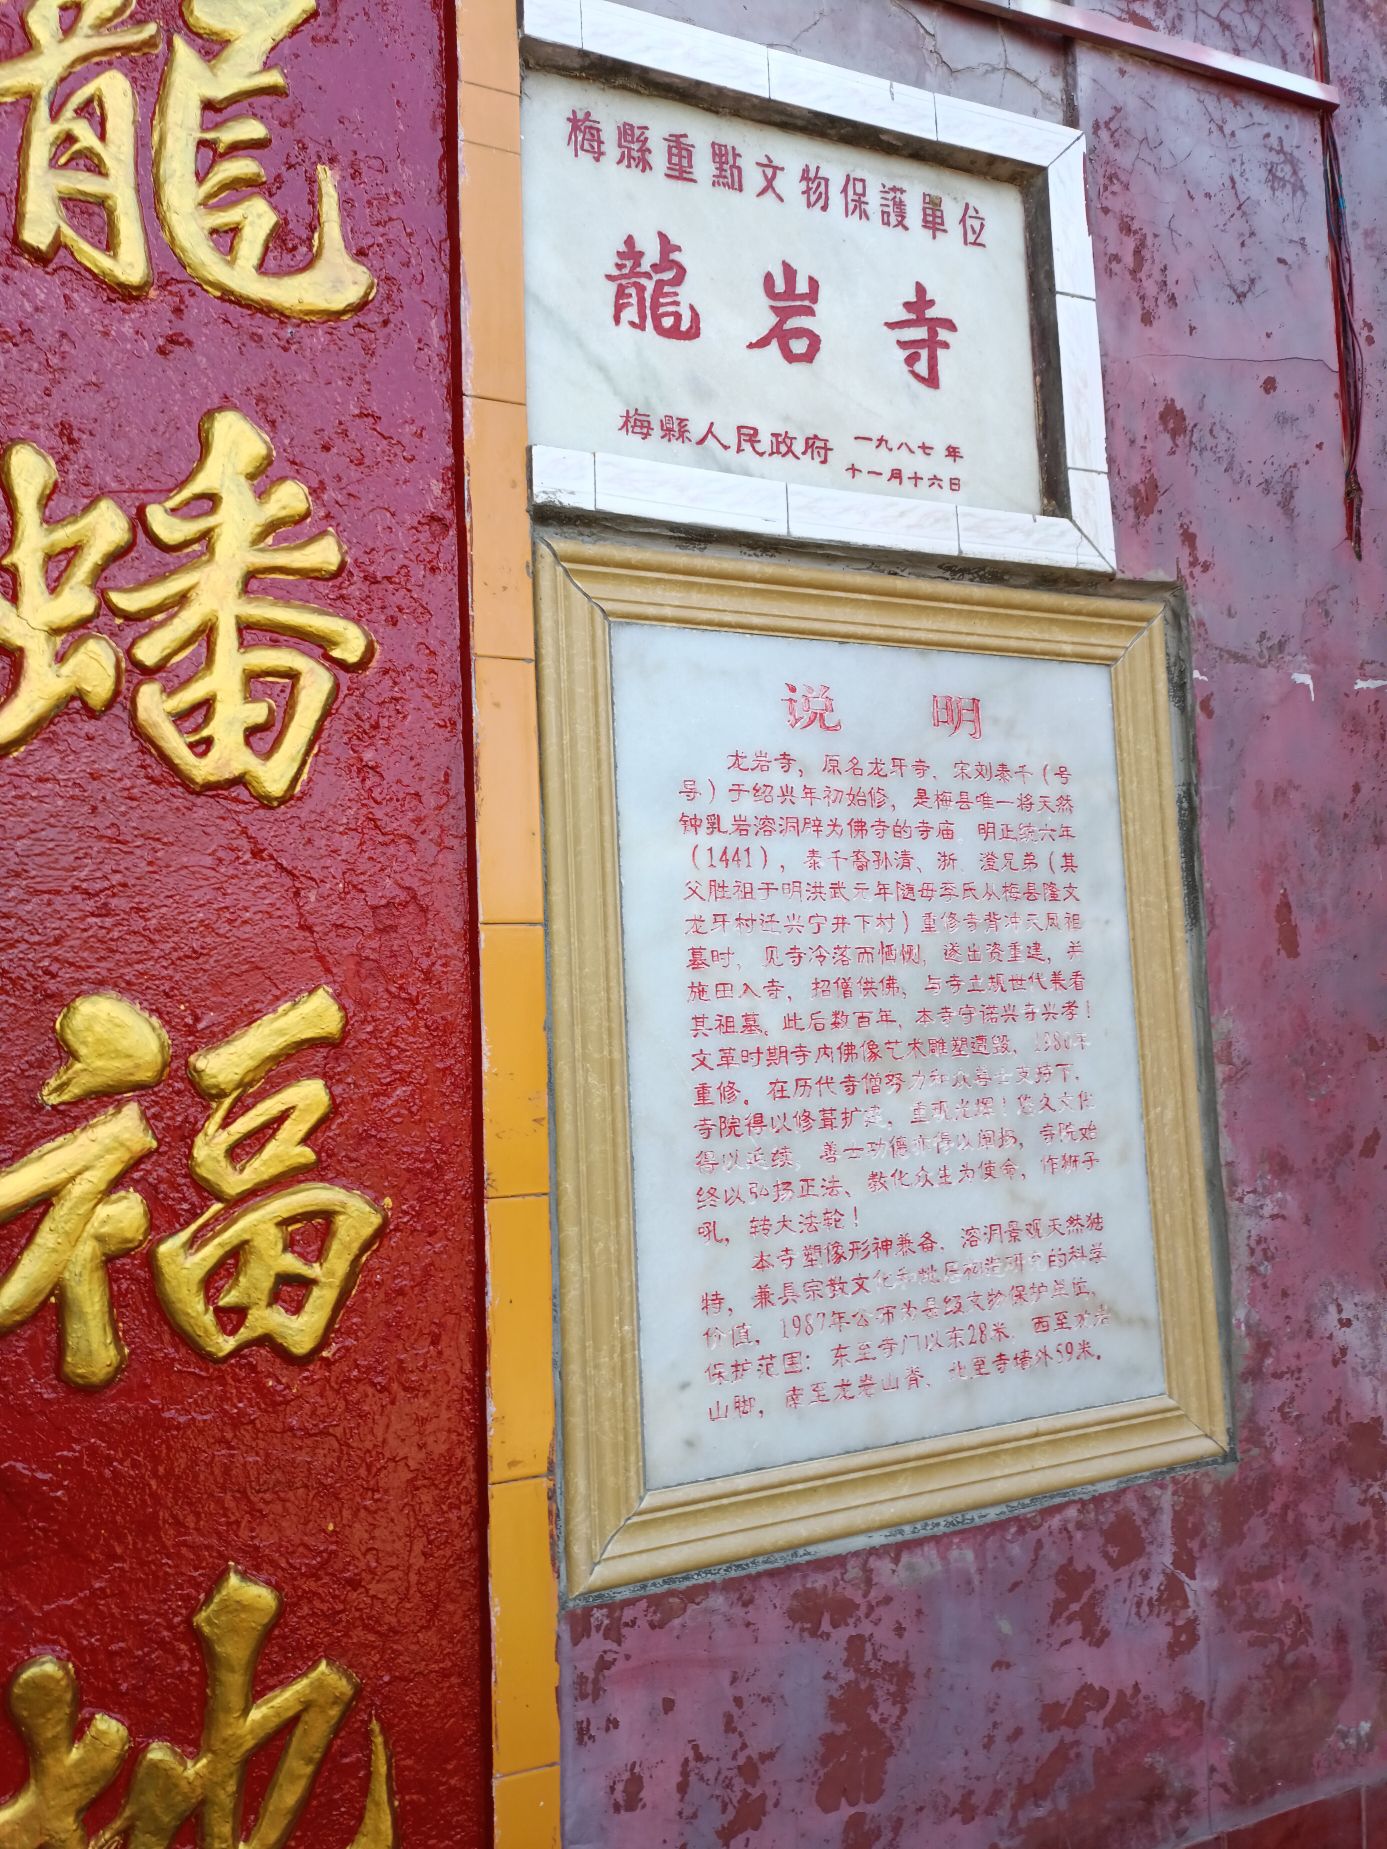 龍蟠福地
梅縣重點文物保護單位
龍岩寺
梅縣人民政府 一九八七年
十一月十六日
说明
龙岩寺，原名龙牙寺，宋刘泰千（号
导）于绍兴年初始修，是梅县唯一将天然
钟乳岩溶洞辟为佛寺的寺庙。明正统六年
（1441），泰千裔孙清、浙、澄兄弟（其
父胜祖于明洪武元年随母李氏从梅县隆文
龙牙村迁兴宁井下村）重修寺背冲天凤祖
墓时，见寺冷落而恓恻，遂出资重建，并
施田入寺，招僧供佛，与寺立规世代兼看
其祖墓。此后数百年，本寺守诺兴寺兴孝！
文革时期寺内佛像艺术雕塑遭毁，年
重修。在历代寺僧努力和众善士支持下，
寺院得以修葺扩建，重现光辉！悠久文化
得以延续，善士功德亦得以阐扬，寺院始
终以弘扬正法、教化众生为使命，作狮子
吼，转大法轮！
本寺塑像形神兼备，溶洞景观天然独
特，兼具宗教文化和研究的科学
价值，1987年公布为县级文物保护单位，
保护范围：东至寺门以东28米，西至
山脚，南至龙岩山脊，北至寺墙外59米。